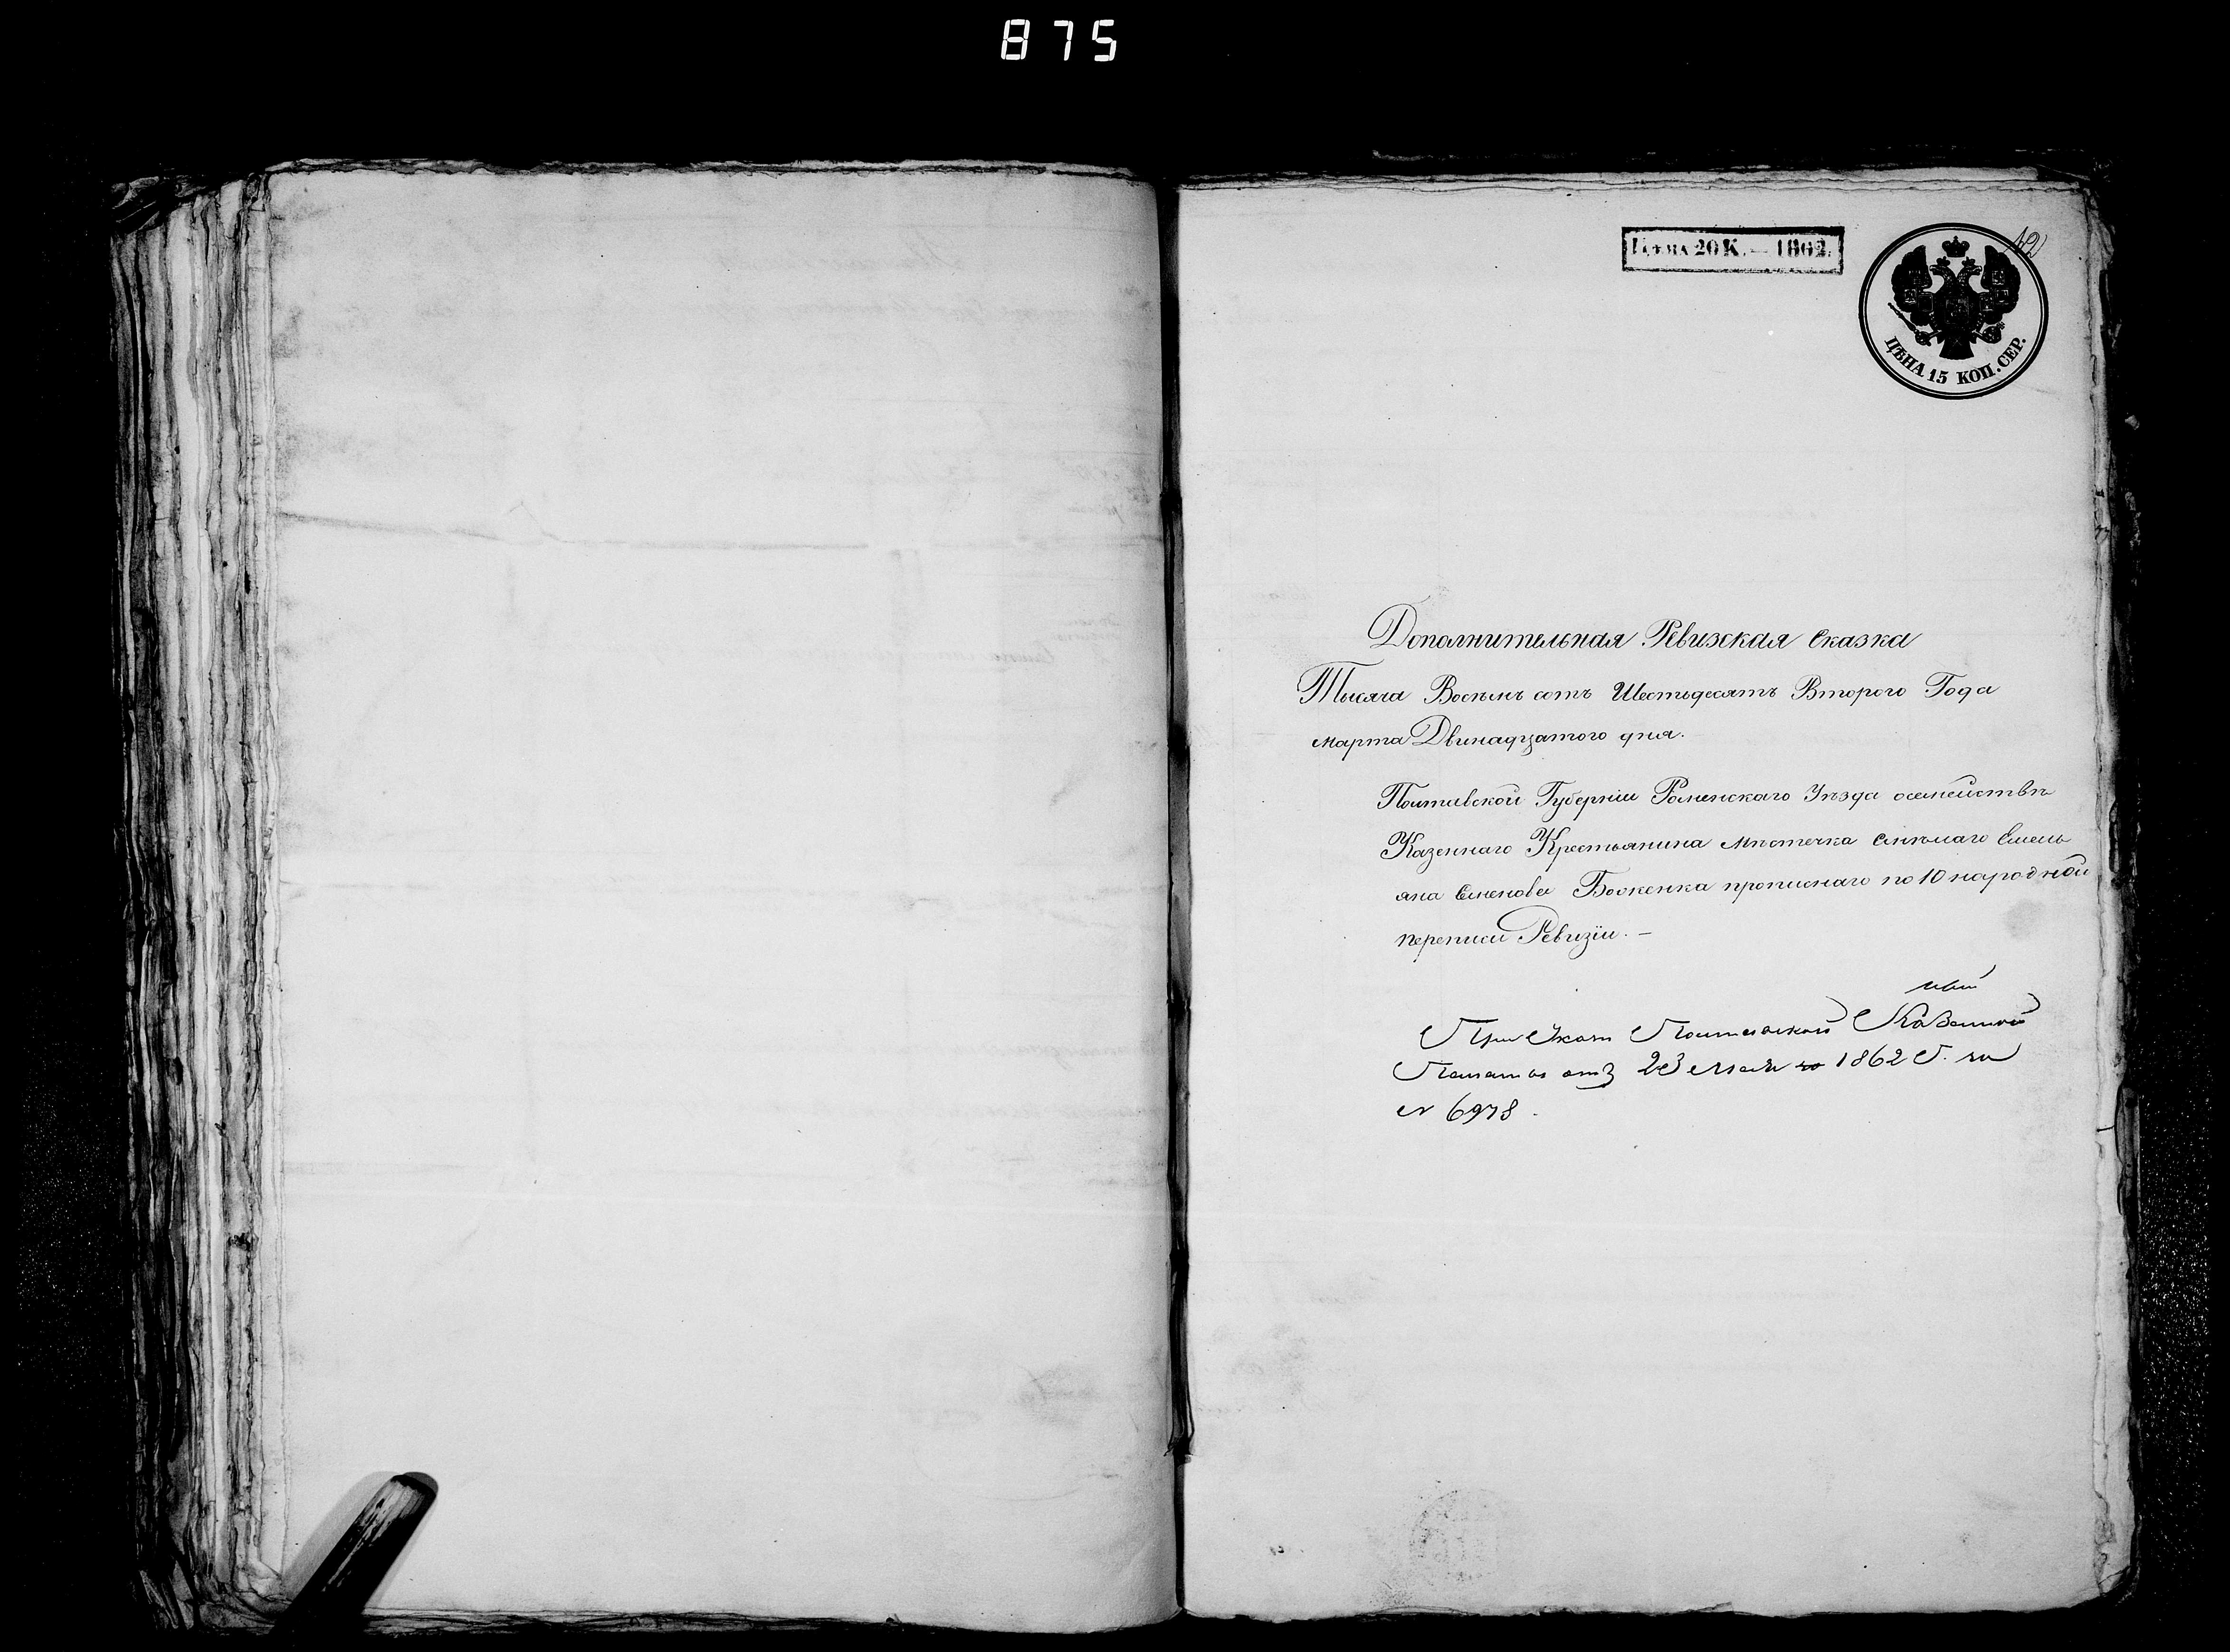 875
Цѣна 20 К. — 1862.
ЦѢНА 15 КОП. СЕР.
Дополнительная Ревизская сказка
Тысяча Восемь сотъ Шестьдесятъ Второго Года
марта Двѣнадцатого дня.
Полтавской Губерніи Роменскаго Уѣзда осемействѣ
Казеннаго Крестьянина мѣстечка Смѣлаго Емель
яна Семенова прописнаго по 10 народной
переписи Ревизіи. —
При Указѣ Полтавской Казенной
Палаты отъ 23 мая 1862 Г. за
№ 6978.